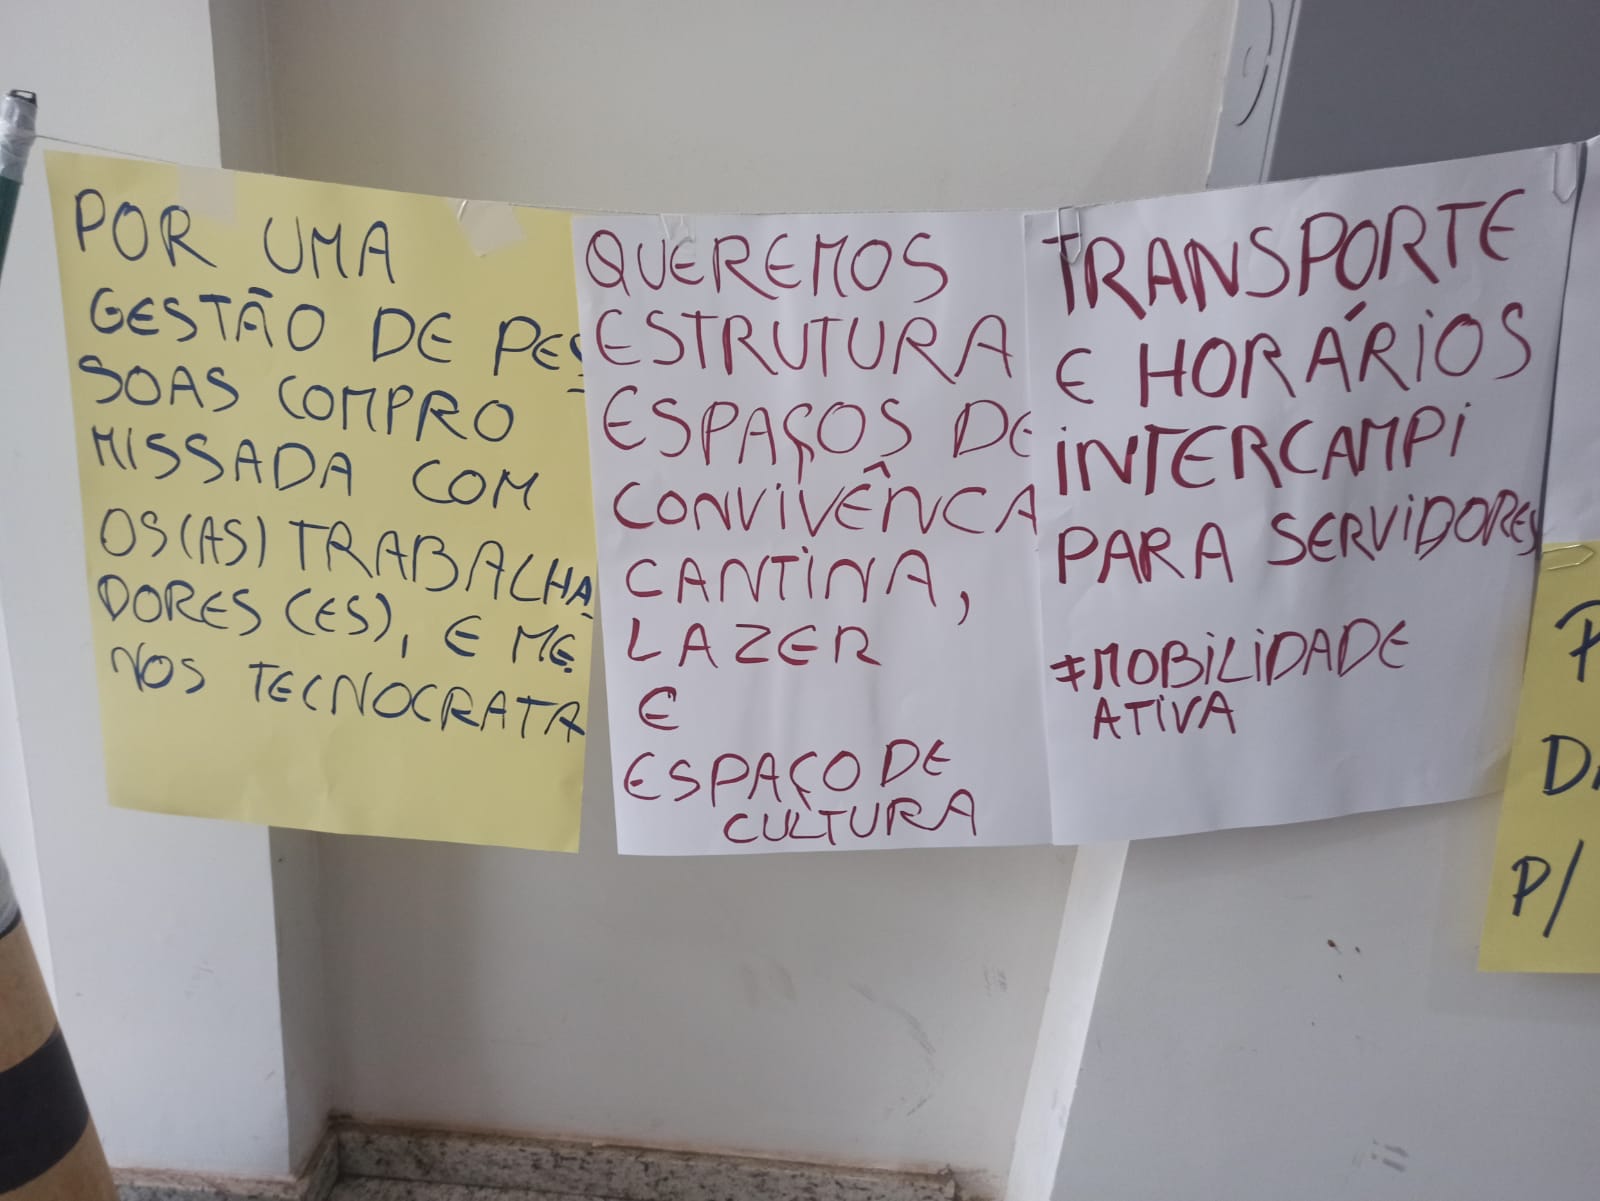 POR UMA
GESTÃO DE PES
SOAS COMPRO
MISSADA COM
OS(AS) TRABALHA
DORES (ES), E ME
NOS TECNOCRATA
QUEREMOS
ESTRUTURA
ESPAÇOS DE
CONVIVÊNCA
CANTINA,
LAZER
E
ESPAÇO DE
CULTURA
TRANSPORTE
E HORÁRIOS
INTERCAMPI
PARA SERVIDORES
#MOBILIDADE
ATIVA
P/